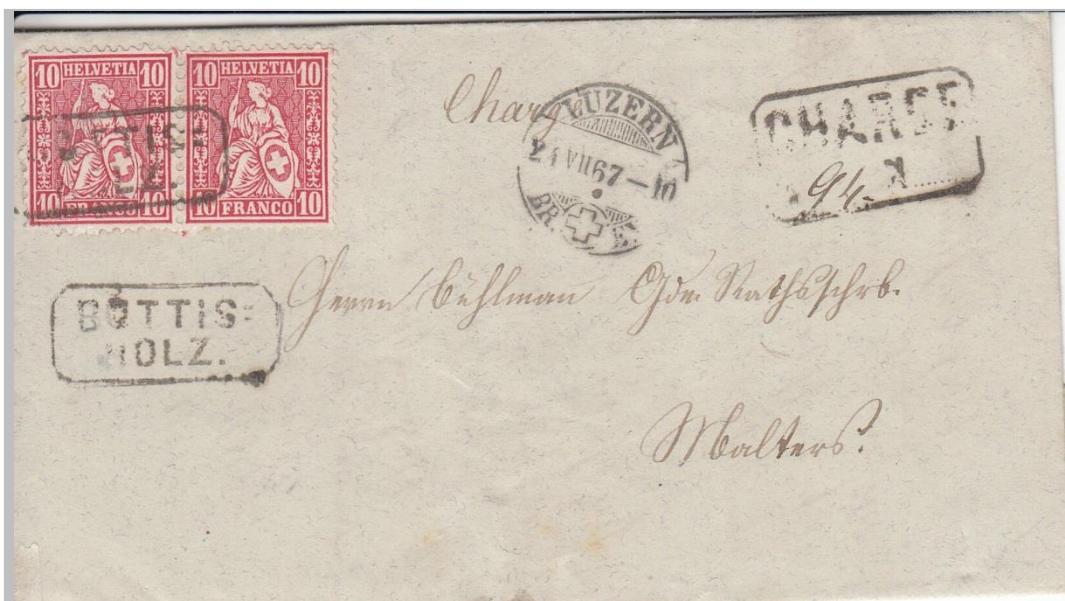 10 HELVETIA 10
10 FRANCO 10
10 HELVETIA 10
10 FRANCO 10
Chargé
LUZERN
VII 67 – 10
CHARGÉ
94.
BUTTIS=
HOLZ.
Herrn Bühlman Gde. Rathsschrb.
Malters.